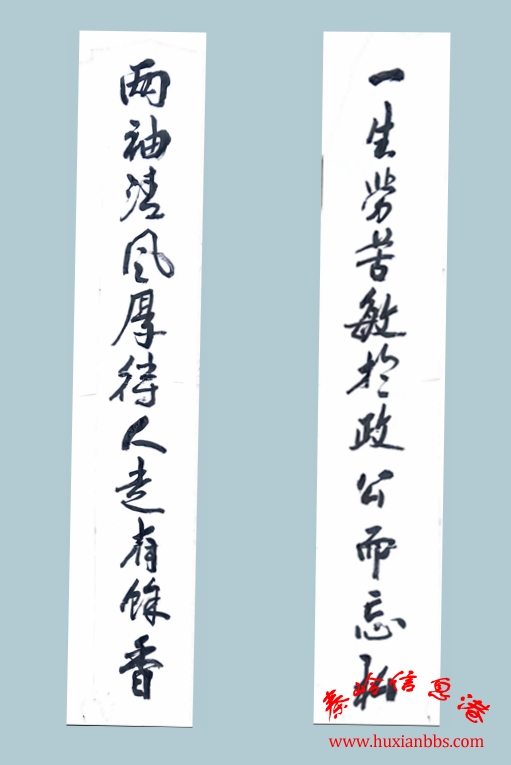 一生劳苦敏於政公而忘私
两袖清风厚待人走有馀香
秦岭信息港
www.huxianbbs.com